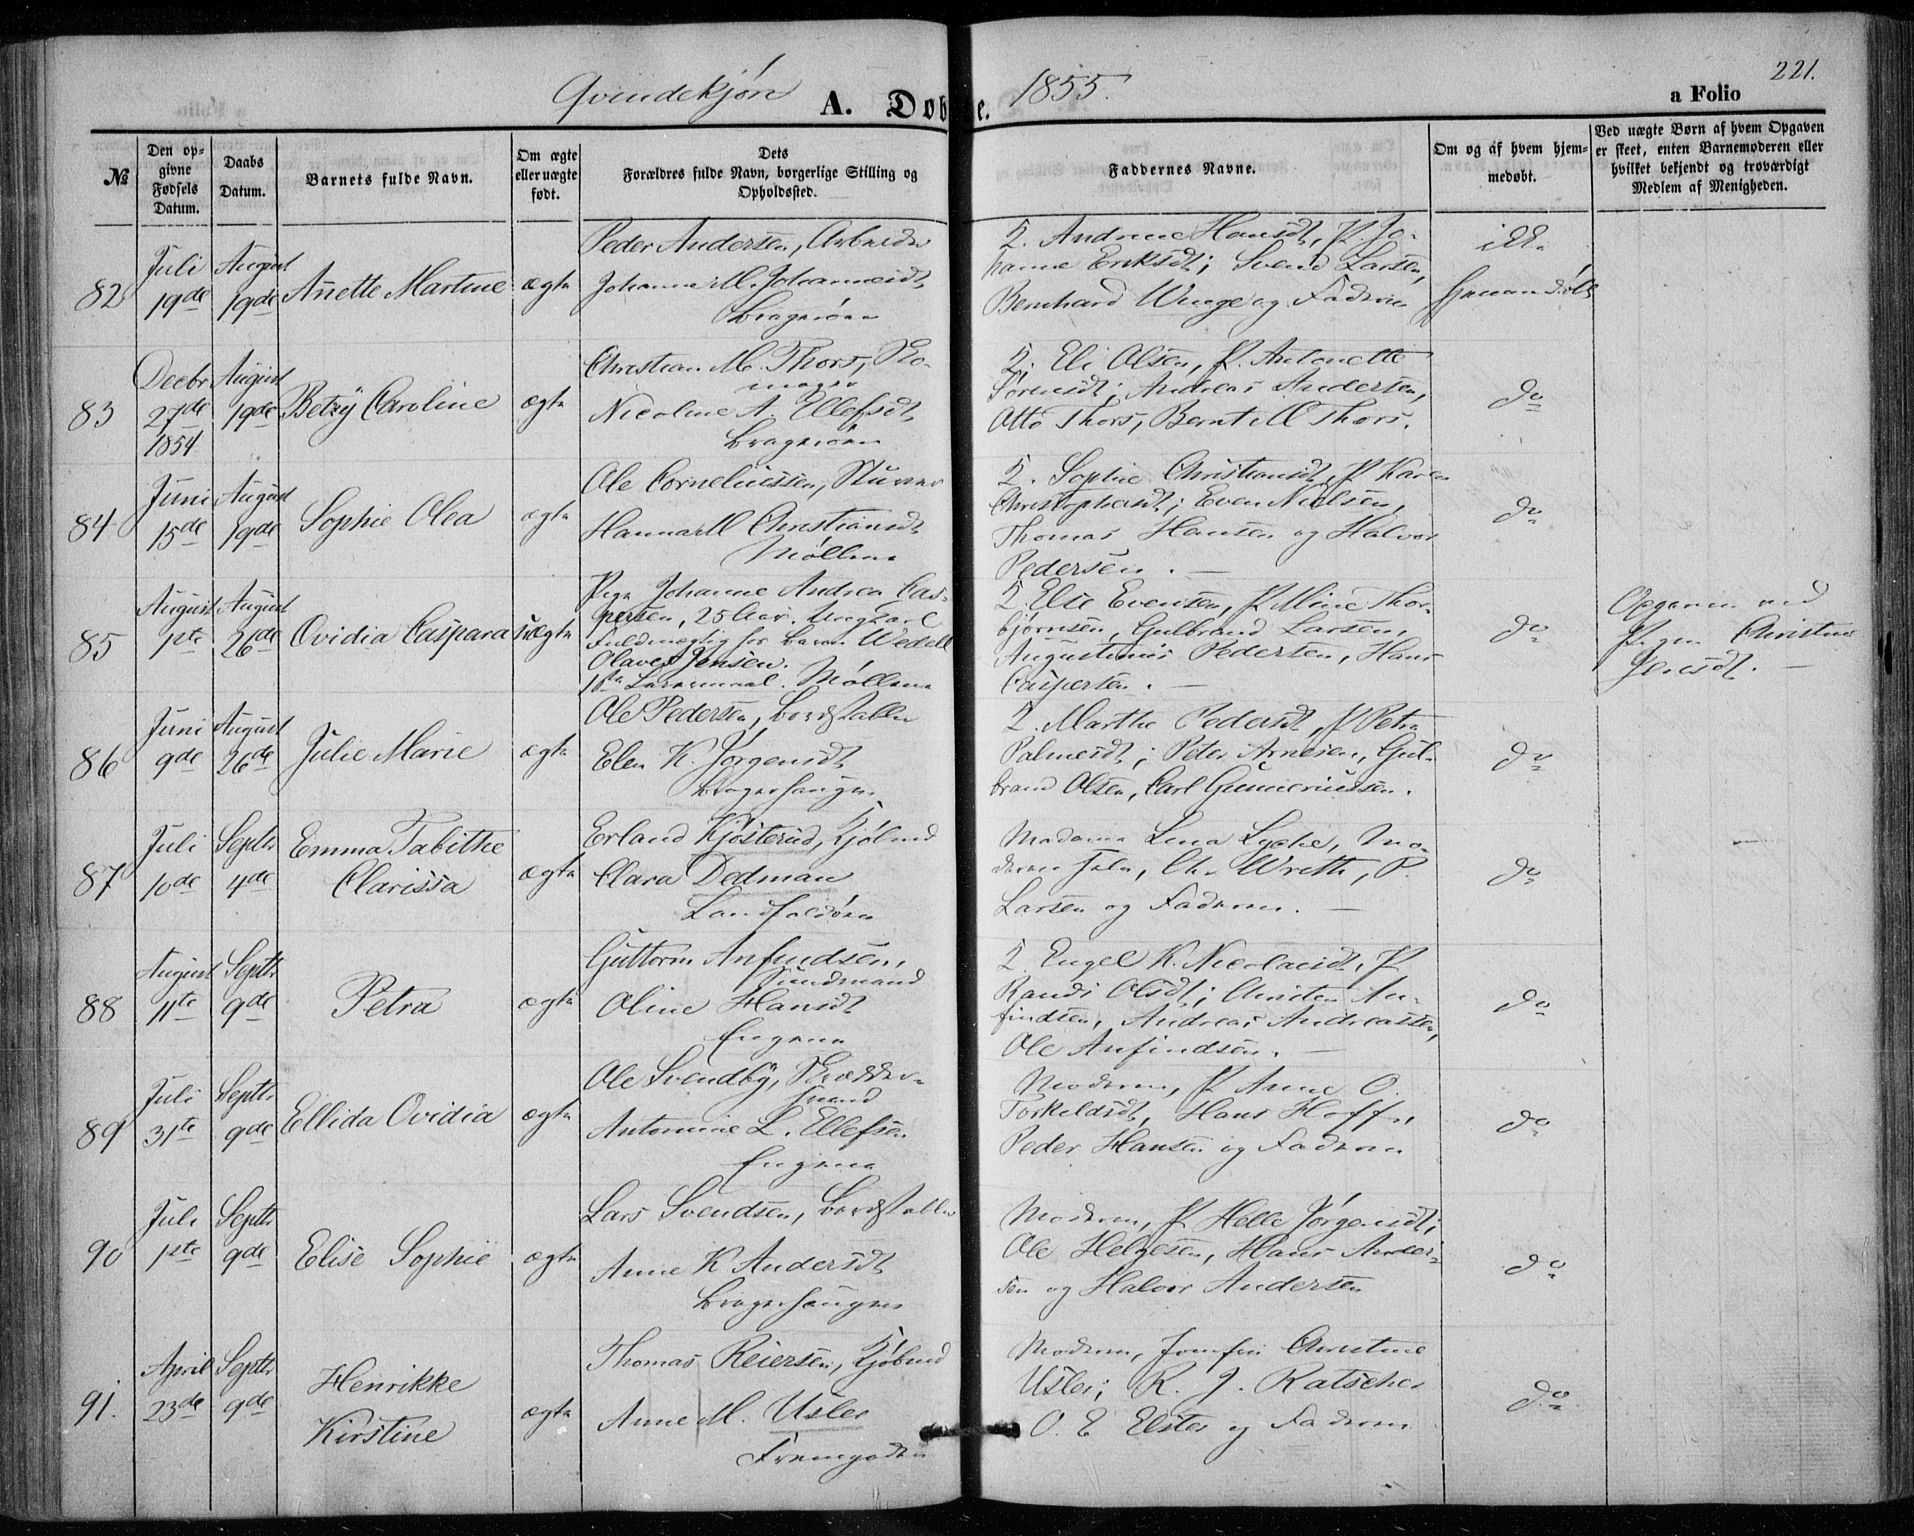 221.
Qvindekjøn A. Døbte. 1855. a Folio
№
Den op-
givne
Fødsels
Datum.
Daabs
Datum.
Barnets fulde Navn.
Om ægte
eller uægte
født.
Dets
Forældres fulde Navn, borgerlige Stilling og
Opholdssted.
Faddernes Navne.
Om og af hvem hjem-
medøbt.
Ved uægte Børn af hvem Opgaven
er skeet, enten Barnemoderen eller
hvilket bekjendt og troværdigt
Medlem af Menigheden.
82
Juli
19de
August
19de
Anette Martine
ægte
Peder Andersen, Arbeider
Johanne M. Johannesdt
Bragerøen
K. Andrine Hansdt, P. Jo-
hanne Eriksdt; Svend Larsen,
Bernhard Winge og Faderen
ikke
hjemmedøbt
83
Decbr
27de
1854
August
19de
Betzÿ Caroline
ægte
Christian M. Thors, Sko-
mager
Nicoline A. Ellefsdt
Bragerøen
K. Eli Olsen, P. Antonette
Sørensdt; Andreas Andersen,
Otto Thors, Bernt M Thors.
do
84
Juni
15de
August
19de
Sophie Olea
ægte
Ole Corneliussen, Stuver
Hanna M Christiansdt
Møllene
K. Sophie Christiansdt, P. Karen
Christophersdt; Even Nielsen,
Thomas Hansen og Halvor
Pedersen.
do
85
August
1ste
August
26de
Ovidia Caspara
uægte
Pige Johanne Andrea Cas-
persen, 25 Aar. Ungkarl
Fuldmægtig for Baron Wedell
Olaves Jensen.
1ste Leiermaal. Møllene
K Else Evensen, P. Mine Thor-
bjørnsen, Gulbrand Larsen,
Augustinus Pedersen, Hans
Caspersen.
do
Opgaven ved
Pigen Christine
Jensdt.
86
Juni
9de
August
26de
Julie Marie
ægte
Ole Pedersen, Bordstabler
Elen K. Jørgensdt
Bragerhaugen
K. Marthe Pedersdt, P. Petra
Palmesdt; Peter Arnesen, Gul-
brand Olsen, Carl Gunneriussen.
do
87
Juli
10de
Septbr
4de
Emma Tabitthe
Clarissa
ægte
Erland Kjøsterud, Kjøbmd
Clara Dedman
Landfaldøen
Madame Lina Lyche, Mo-
deren selv, Chr Wrette, P.
Larsen og Faderen.
do
88
August
11te
Septbr
9de
Petra
ægte
Guttorm Anfindsen,
Sundmand
Oline Hansdt
Engene
K. Engel K. Nicolaisdt, P.
Randi Olsdt; Christen An-
findsen, Andreas Andreassen,
Ole Anfindsen.
do
89
Juli
31te
Septbr
9de
Ellida Ovidia
ægte
Ole Svendbÿ, Skrædder-
svend
Antonine L. Ellefsen
Engene
Moderen, P. Anne O.
Torkeldsdt, Hans Hoff,
Peder Hansen og Faderen
do
90
Juli
1ste
Septbr
9de
Elise Sophie
ægte
Lars Svendsen, Bordstabler
Anne K Andersdt
Bragerhaugen
Moderen, P. Helle Jørgensdt;
Ole Helgesen, Hans Ander-
sen og Halvor Andersen
do
91.
April
23de
Septbr
9de
Henrikke
Kirstine
ægte
Thomas Reiersen, Kjøbmd
Anne M. Usler
Fremgaden
Moderen, Jomfru Christine
Usler; R. J. Ratscher
O. E Elster og Faderen
do